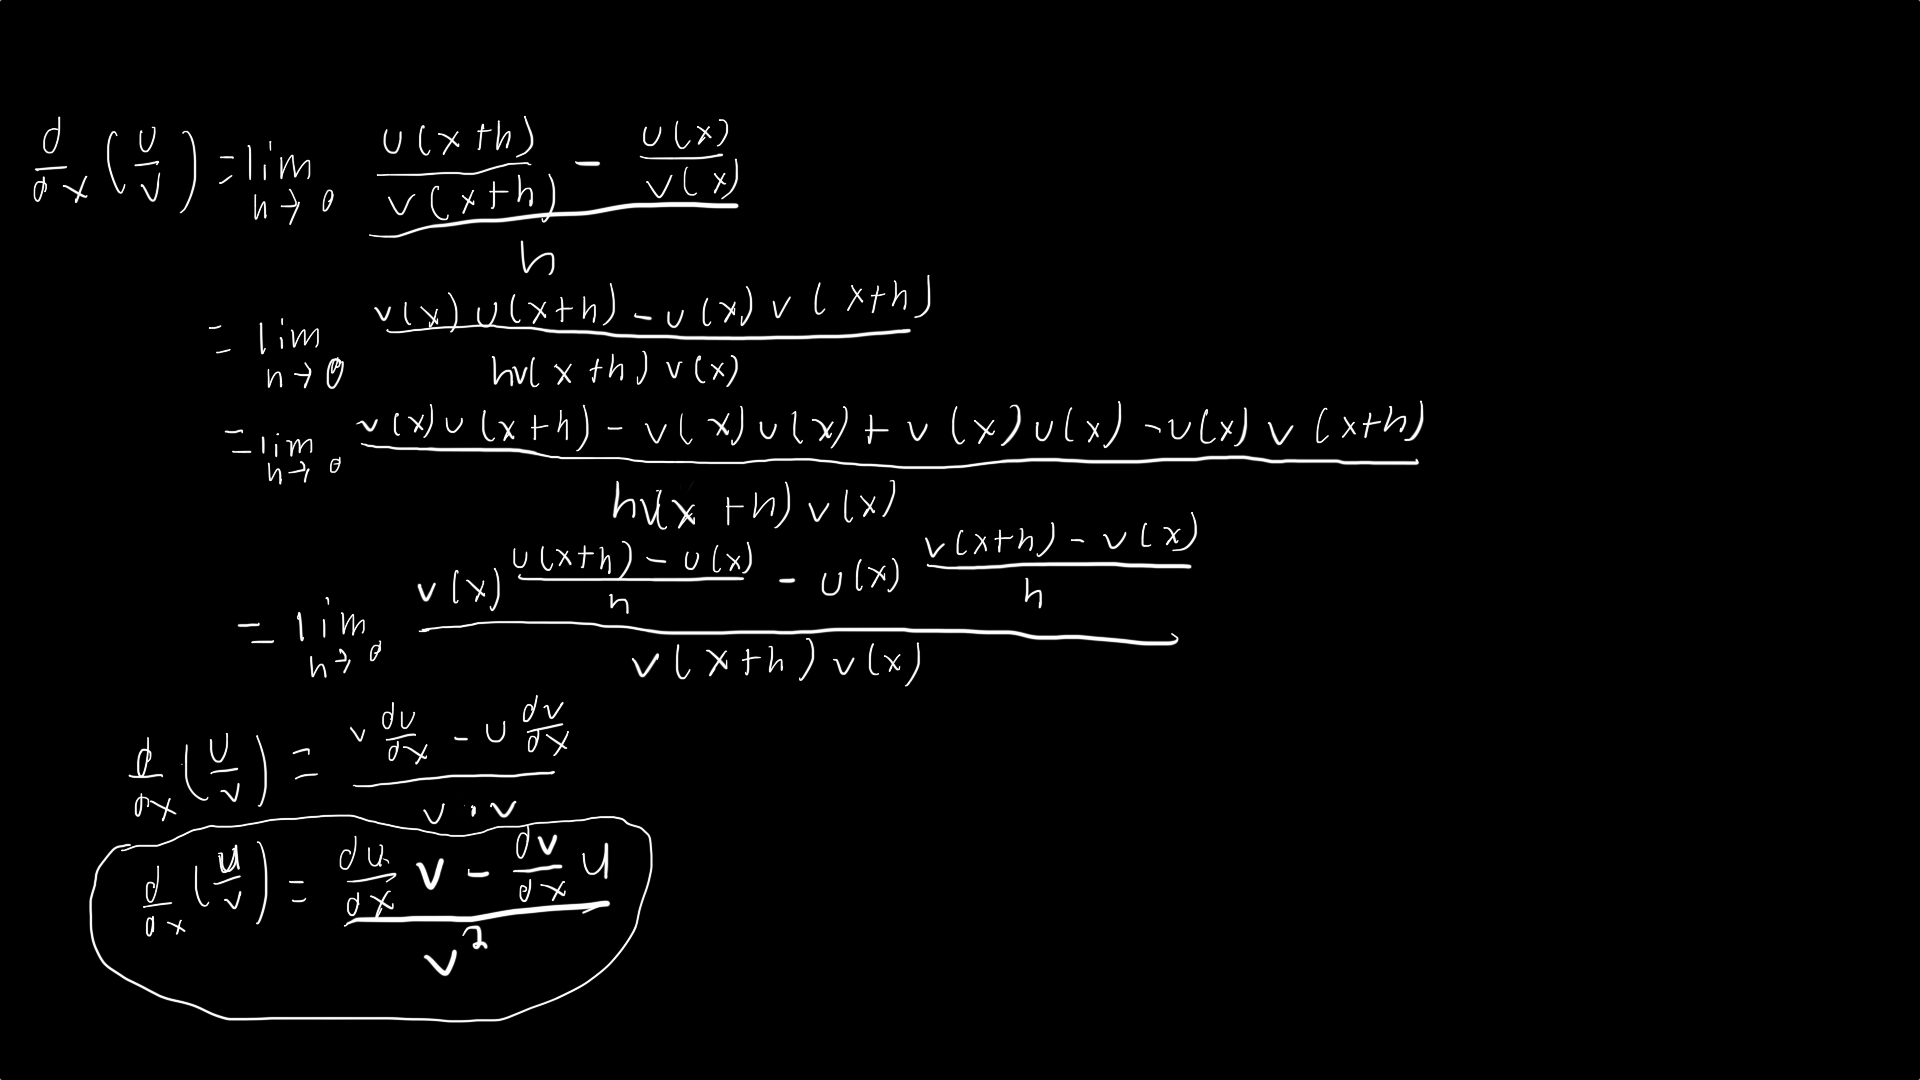 d/dx (u/v) = lim h→0 (u(x+h)/v(x+h) - u(x)/v(x))/h
= lim h→0 (v(x)u(x+h) - u(x)v(x+h))/(hv(x+h)v(x))
= lim h→0 (v(x)u(x+h) - v(x)u(x) + v(x)u(x) - u(x)v(x+h))/(hv(x+h)v(x))
= lim h→0 (v(x) (u(x+h) - u(x))/h - u(x) (v(x+h) - v(x))/h)/(v(x+h)v(x))
d/dx (u/v) = (v du/dx - u dv/dx)/(v · v)
d/dx (u/v) = (du/dx v - dv/dx u)/v²